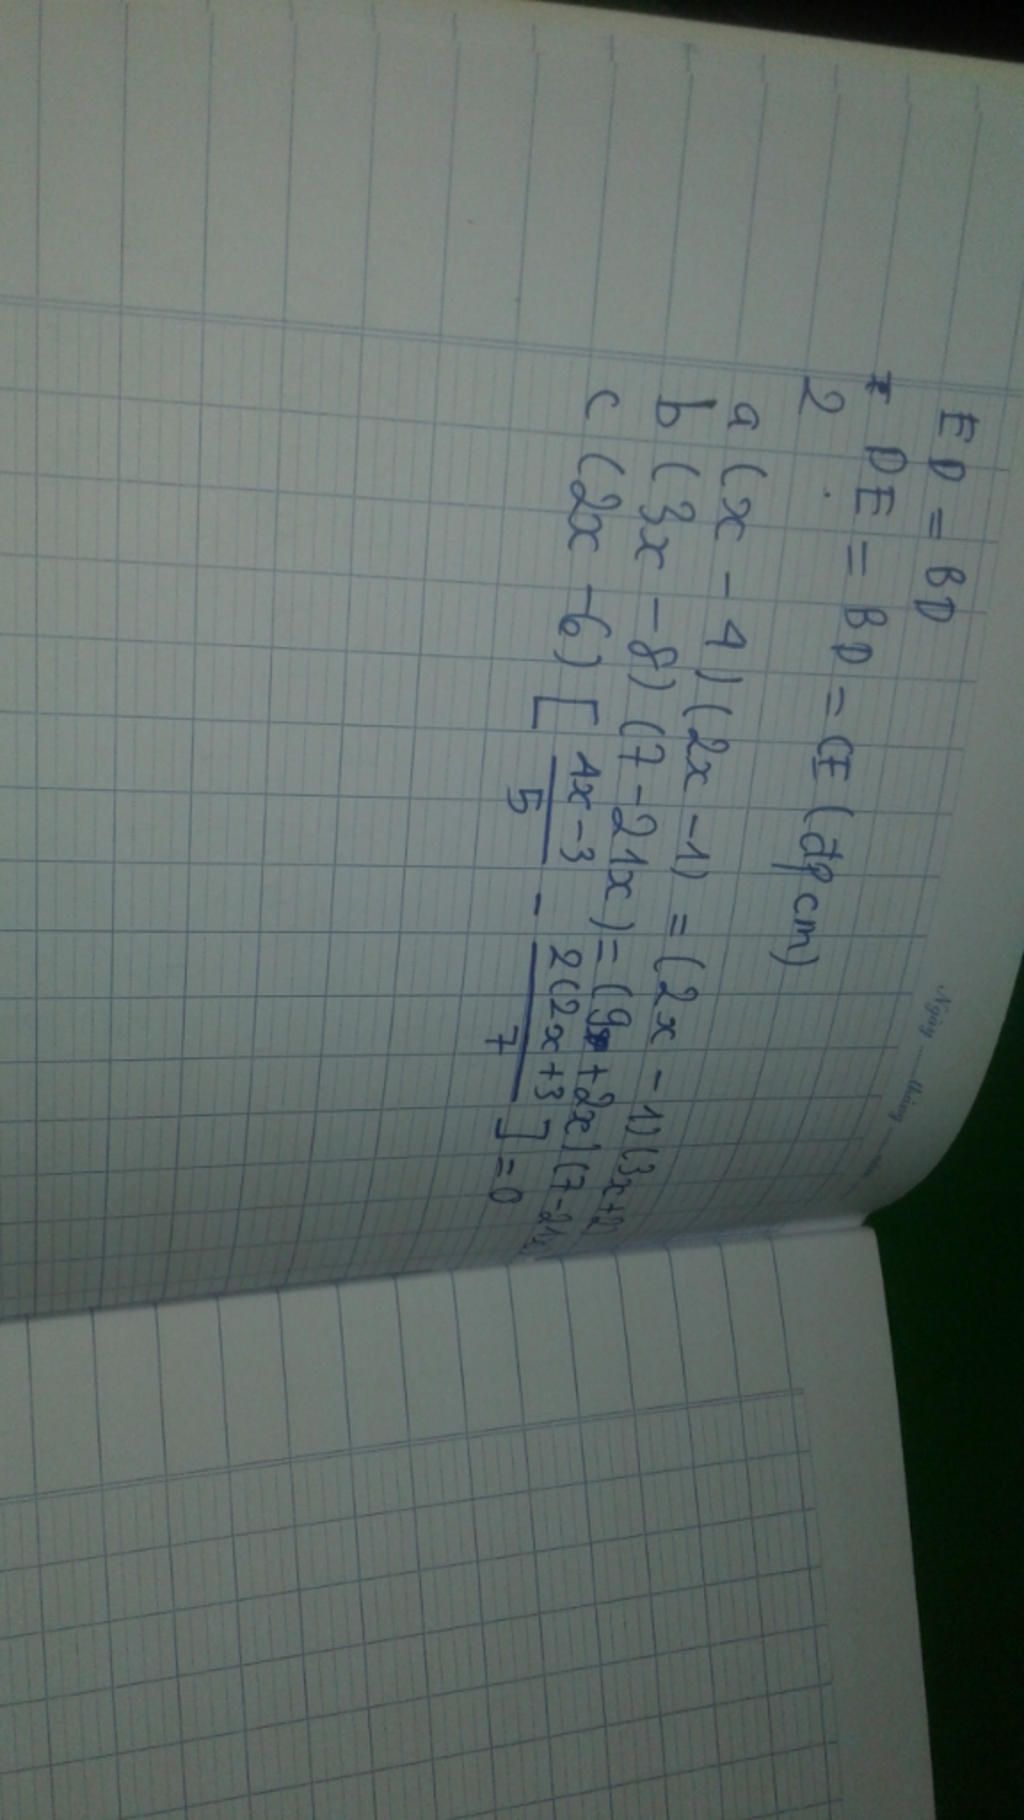 Ngày
ED = BD
* DE = BD = CE (đpcm)
2
a (x - 4)(2x - 1) = (2x - 1)(3x+2)
b (3x - 8)(7 - 21x) = (9 + 2x)(7 - 21x
c (2x - 6) [ 4x - 3 / 5 - 2(2x + 3 / 7 ] = 0